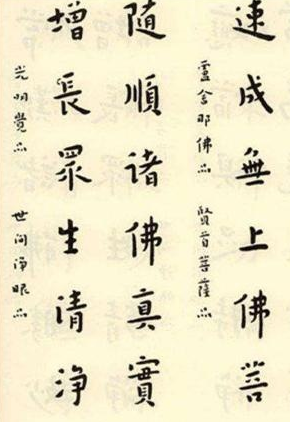 速成無上佛菩
盧舍那佛品 賢首菩薩品
隨順諸佛真實
增長眾生清淨
光明覺品 世間淨眼品